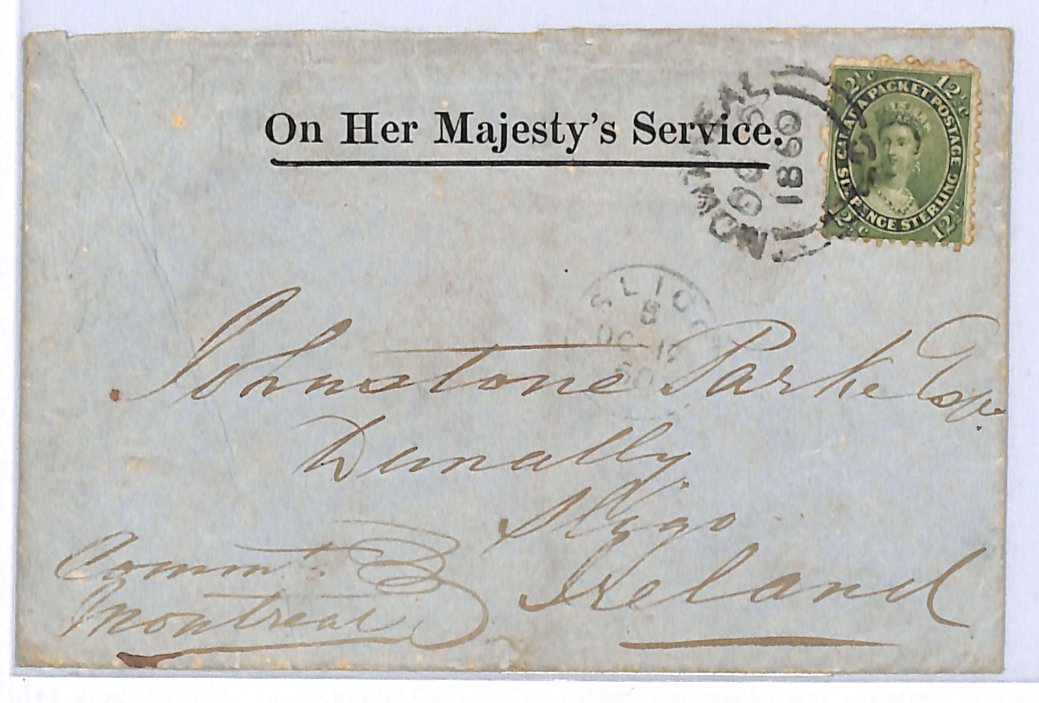 On Her Majesty's Service.
MONTREAL
1860
12½ c 12½ c
CANADA PACKET POSTAGE
SIX PENCE STERLING
12½ c 12½ c
SLIGO
B
OC 19
60
Johnstone Parke Esqre
Dunally
Sligo
Ireland
Commt
Montreal